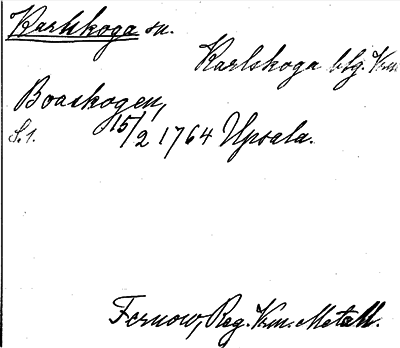 Karlskoga sn.
Karlskoga bfg. Km.
Boaskogen,
S. 1. 15/2 1764 Upsala.
Fernow, Reg. Km. Metall.